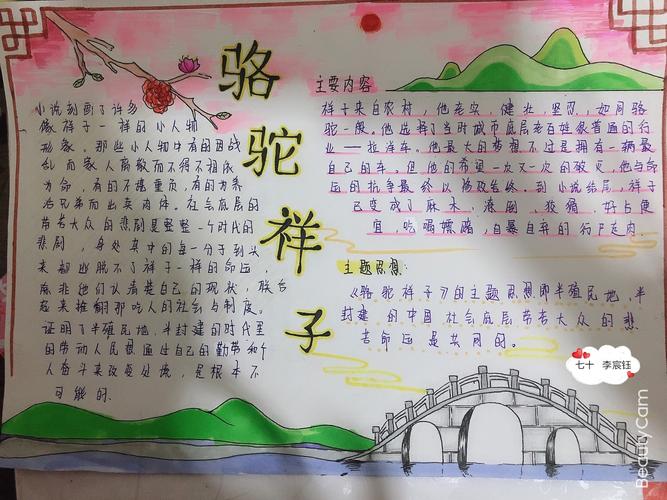 骆驼祥子
小说刻画了许多
像祥子一样的小人物
形象。那些小人物中有的因战
乱而家人离散而不得不相依
为命,有的不堪重负,有的为养
活兄弟而出卖肉体。社会底层的
劳苦大众的悲剧是整整一个时代的
悲剧,身处其中的每一分子到头
来都逃脱不了祥子一样的命运,
除非他们认清楚自己的现状,联合
起来推翻那吃人的社会与制度。
证明了半殖民地、半封建的时代里
的劳动人民想通过自己的勤劳和个
人奋斗来改变处境,是根本不
可能的。
主要内容
祥子来自农村,他老实、健壮、坚忍,如同骆
驼一般。他选择了当时城市底层老百姓很普通的行
业——拉洋车。他最大的梦想不过是拥有一辆
自己的车。但他的希望一次又一次的破灭,他与命
运的抗争最终以惨败告终。到小说结尾,祥子
已变成了麻木、潦倒、狡猾、好占便
宜、吃喝嫖赌,自暴自弃的行尸走肉
主题思想:
《骆驼祥子》的主题思想即半殖民地,半
封建的中国社会底层劳苦大众的悲
苦命运是共同的。
七十 李宸钰
BeautyCam